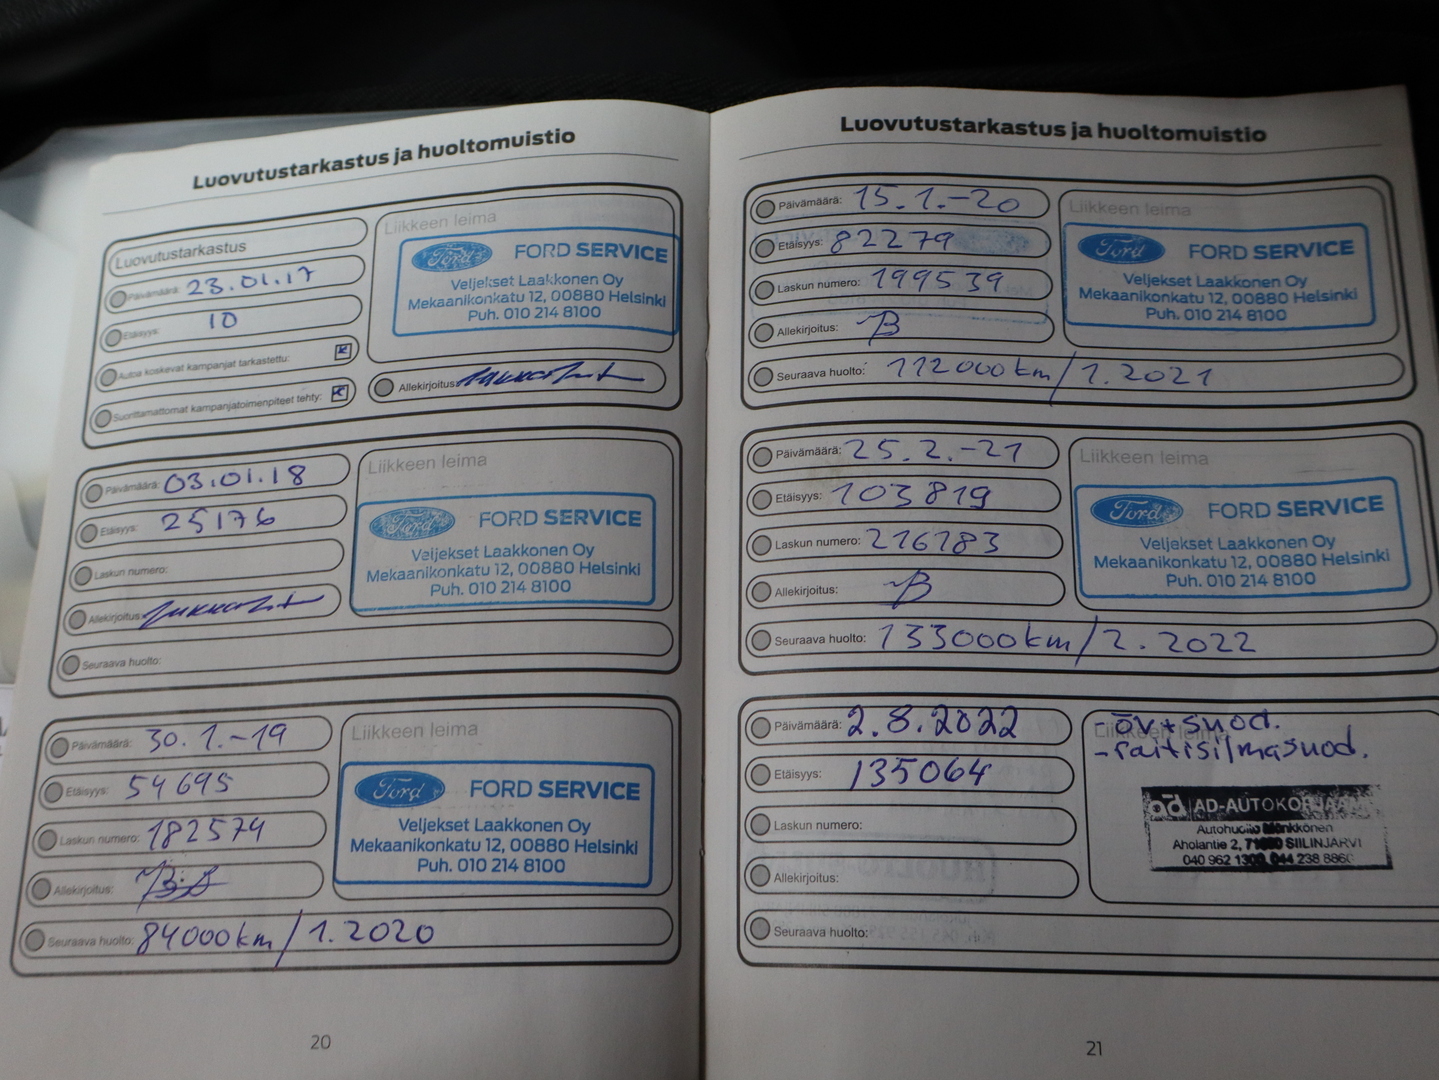 Luovutustarkastus ja huoltomuistio
Luovutustarkastus
Päivämäärä: 23.01.17
Etäisyys: 10
Autoa koskevat kampanjat tarkastettu:
Suorittamattomat kampanjatoimenpiteet tehty:
Liikkeen leima
Ford FORD SERVICE
Veljekset Laakkonen Oy
Mekaanikonkatu 12, 00880 Helsinki
Puh. 010 214 8100
Allekirjoitus:
Päivämäärä: 03.01.18
Etäisyys: 25176
Laskun numero:
Allekirjoitus:
Seuraava huolto:
Liikkeen leima
Ford FORD SERVICE
Veljekset Laakkonen Oy
Mekaanikonkatu 12, 00880 Helsinki
Puh. 010 214 8100
Päivämäärä: 30.1.-19
Etäisyys: 54695
Laskun numero: 182574
Allekirjoitus:
Seuraava huolto: 84000km/1.2020
Liikkeen leima
Ford FORD SERVICE
Veljekset Laakkonen Oy
Mekaanikonkatu 12, 00880 Helsinki
Puh. 010 214 8100
20
Luovutustarkastus ja huoltomuistio
Päivämäärä: 15.1.-20
Etäisyys: 82279
Laskun numero: 199539
Allekirjoitus:
Seuraava huolto: 112000km/1.2021
Liikkeen leima
Ford FORD SERVICE
Veljekset Laakkonen Oy
Mekaanikonkatu 12, 00880 Helsinki
Puh. 010 214 8100
Päivämäärä: 25.2.-21
Etäisyys: 103819
Laskun numero: 216183
Allekirjoitus:
Seuraava huolto: 133000km/2.2022
Liikkeen leima
Ford FORD SERVICE
Veljekset Laakkonen Oy
Mekaanikonkatu 12, 00880 Helsinki
Puh. 010 214 8100
Päivämäärä: 2.8.2022
Etäisyys: 135064
Laskun numero:
Allekirjoitus:
Seuraava huolto:
Liikkeen leima
- öv+suod.
- raitisilmasuod.
ad AD-AUTOKORJAAMO
Autohuolto Mönkkönen
Aholantie 2, 71800 SIILINJÄRVI
040 962 1300, 044 238 8860
21